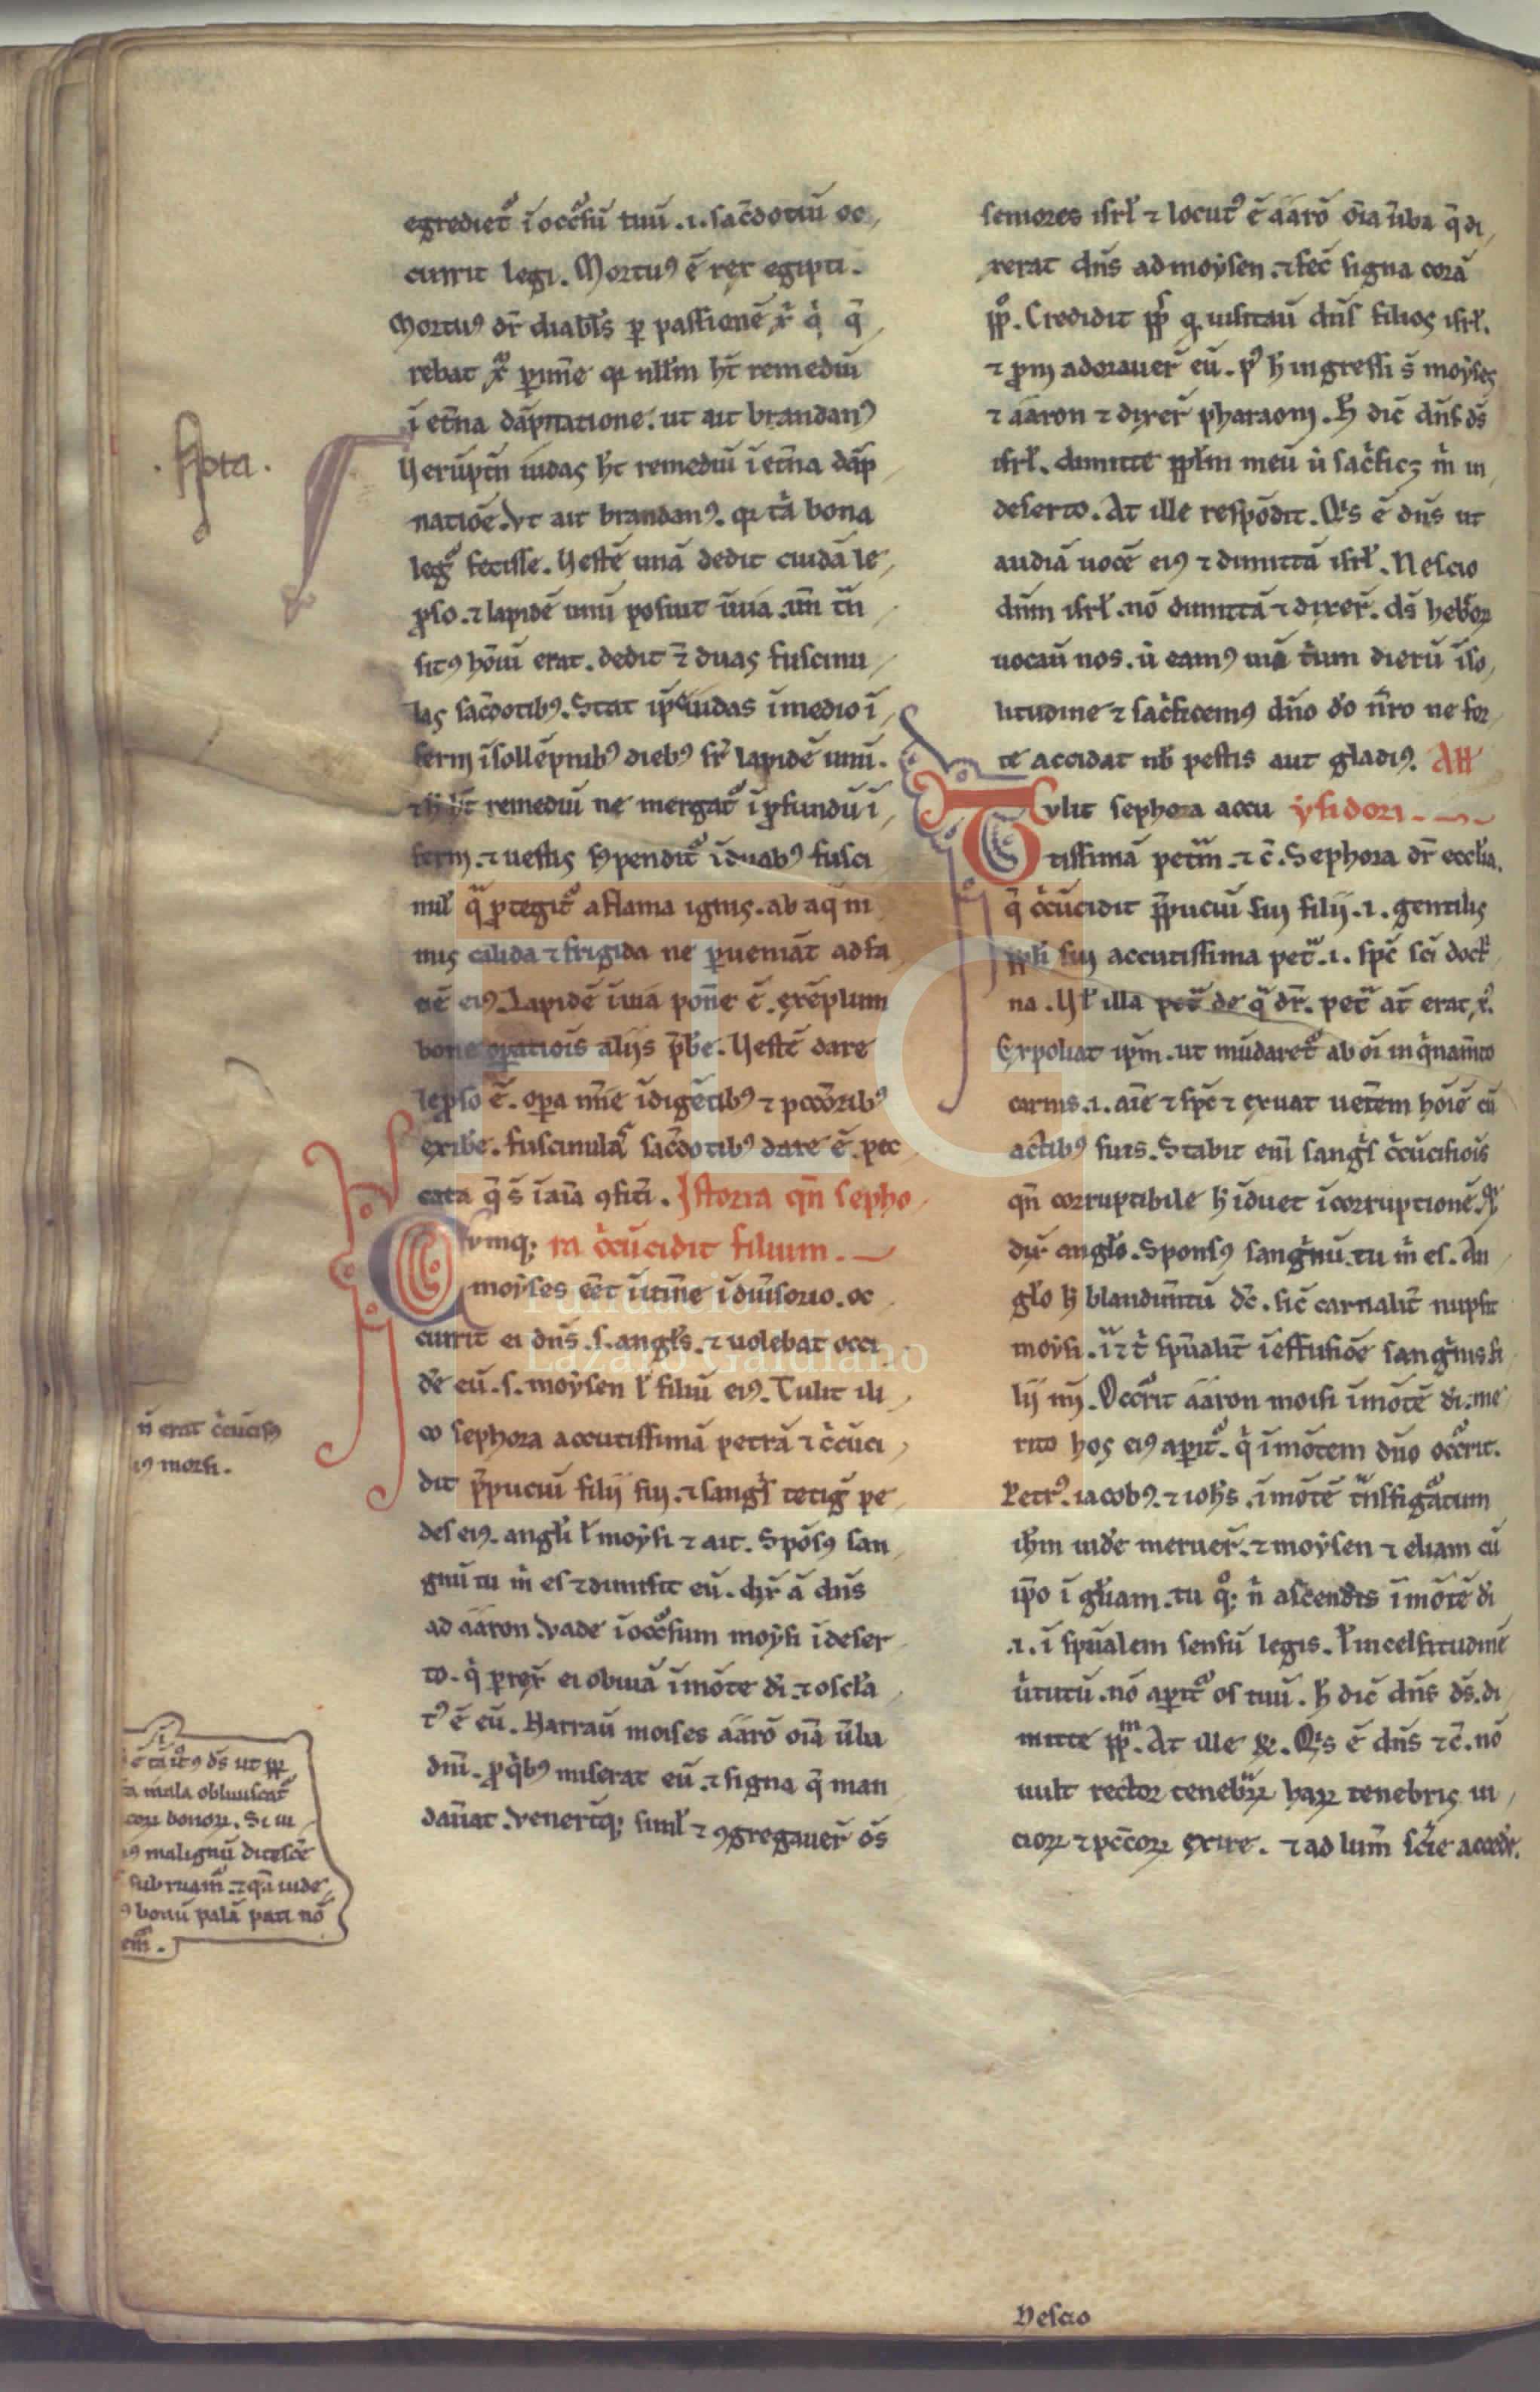 egrediet᷑ ī occ̄sū tuū .i. sac̄dotiū oc
currit legi. Mortuꝰ ē rex egipti.
Mortuꝰ dr̄ diabl̄s ꝑ passionē
rebat ꝑimē̄ qi nll̄m ht̄ remediū
ī et̄na dāpnatione. ut ait brandanꝰ
Uerūptn̄ iudas ht̄ remediū ī et̄na dāp
natiōe. Vt ait brandanꝰ. qi bona
leg᷑ fecisse. Uestē unā dedit cuidā le
ꝓso. ⁊ lapidē unū posuit ī uia. un̄
sitꝰ hōiū erat. dedit ⁊ duas fuscinu
las sac̄dotibꝰ. Stat ip̄e iudas ī medio ī
ferni ī sollēpnibꝰ diebꝰ sr̄ lapidē unū.
remediū ne mergat᷑ ī ꝓfundū ī
ferni. ⁊ uestis sꝰpendit᷑ ī duabꝰ fusci
nul̄ ꝓtegit᷑ a flama ignis. ab aq̄ ni
mis calida ⁊ frigida ne ꝑueniāt ad fa
ciē eiꝰ. Lapidē ī uia pon̄e ē. exēplum
bone oꝑatiōis aliis p̄b̄e. Uestē dare
lepso ē. oꝑa mīe īdigētibꝰ ⁊ pccōribꝰ
exib̄e. fuscinulas sac̄dotibꝰ dare ē. pec
cata q̄ s̄ ī aīa ꝯfit̄i. Istoria qn̄ sepho
Cumq; ra c̄cūcidit filium.
moẏses eēt ī itin̄e ī diūsorio. oc
currit ei dn̄s. s. angl̄s. ⁊ uolebat occi
de᷑ eū. s. moẏsen ł filiū eiꝰ. Tulit ili
co sephora accutissimā petrā ⁊ c̄cūci
dit p̄puciū filij sui. ⁊ sangⁱs tetiḡ pe
des eiꝰ. angl̄i ł moẏsi ⁊ ait. Spōsꝰ san
gnū tu m̄ es ⁊ dimisit eū. dix̄ ā dn̄s
ad ááron. Vade ī occ᷑sum moẏsi ī deser
to. qⁱ ꝑrex̄ ei obuiā ī mōte dī. ⁊ oscl̄a
tꝰ ē eū. Narrau̅ moises ááro̅ oīa ūba
dn̄i. ꝓ qⁱbꝰ miserat eū. ⁊ signa q̄ man
dau̅at. Venerūtq; siml̄ ⁊ ꝯgregauer̄ ōs
seniores isrł ⁊ locutꝰ ē áárō oīa ūba q̄ di
xerat dn̄s ad moẏsen. ⁊ fec̄ signa corā
pp̄o. Credidit pp̄s q̄ uisitau̅ dn̄s filios isrł.
⁊ ꝓni adorauer̄ eū. pꝰ h̄ ingressi s̄ moẏses
⁊ ááron ⁊ dixer̄ pharaoni. H̄ dic̄ dn̄s ds̄
isrł. dimitte ppl̄m meū ut sac̄ficꝫ m̄ in
deserto. At ille respōdit. Qⁱs ē dn̄s ut
audiā uocē eiꝰ ⁊ dimittā isrł. Nescio
dn̄m isrł. nō dimittā ⁊ dixer̄. ds̄ hebꝛoꝝ
uocau̅ nos. ut eamꝰ uiā tⁱum dierū ī so
litudine ⁊ sac̄ficemꝰ dn̄o do̅ n̄ro ne for
te accidat nb̄ pestis aut gladiꝰ. All
Tulit sephora accu ẏsidori.
tissimā petᵃm. ⁊ c̄. Sephora dr̄ eccl̄ia.
q̄ c̄cūcidit p̄puciū sui filij .i. gentilis
ppl̄i sui accutissima petᵃ .i. spc̄ sc̄i doct
na. Uł illa petᵃ de qᵃ dr̄. petᵃ at̄ erat x̄.
Expoliat ip̄m. ut mūdaret᷑ ab oī inqⁱnam̄to
carnis .i. aīe ⁊ spc̄ ⁊ exuat uet̄em hōiē cū
actibꝰ suis. Stabit eni̅ sangⁱs c̄cūcisiōis
qn̄ corruptibile h̄ īduet īcorruptionē.
dix̄ angl̄o. Sponsꝰ sangⁱnū tu m̄ es. An
gl̄o h̄ blandim̄tū dc̄. sic̄ carnalit̄ nupsit
moẏsi. ⁊ sp̄ualit̄ ī effusiōe sangⁱnis fi
lii mi. Occ᷑rit ááron moisi ī mōtē dī. me
rito hos eiꝰ aꝑit᷑. qⁱ ī mōtem dn̄o occ᷑rit.
Petrꝰ. iacobꝰ. ⁊ ioh̄s. ī mōtē tᵃnsfigᵃtum
ih̄m uide᷑ meruer̄. ⁊ moẏsen ⁊ eliam cū
ip̄o ī gl̄iam. tu qꝫ n̄ ascendis ī mōtē dī
.i. ī sp̄ualem sensū legis. ł in celsitudinē
ūtutū. nō aꝑit᷑ os tuū. H̄ dic̄ dn̄s ds̄. di
mitte pp̄m. At ille &. Qⁱs ē dn̄s ⁊ c̄. nō
uult rector tenebᵃꝝ haꝝ tenebris ui
cioꝝ ⁊ pcc̄oꝝ exire. ⁊ ad lum̄ sc̄ie accede᷑.
Nota.
n̄ erat c̄cūcisꝰ
morsi.
ds̄ ut
mala obliuiscat᷑
bonoꝝ. Si in
malignū ditescē
subruam᷑. ⁊ qᵃ uide
bonū palā pati nō
Nescio
Fundación
Lázaro Galdiano
FLG